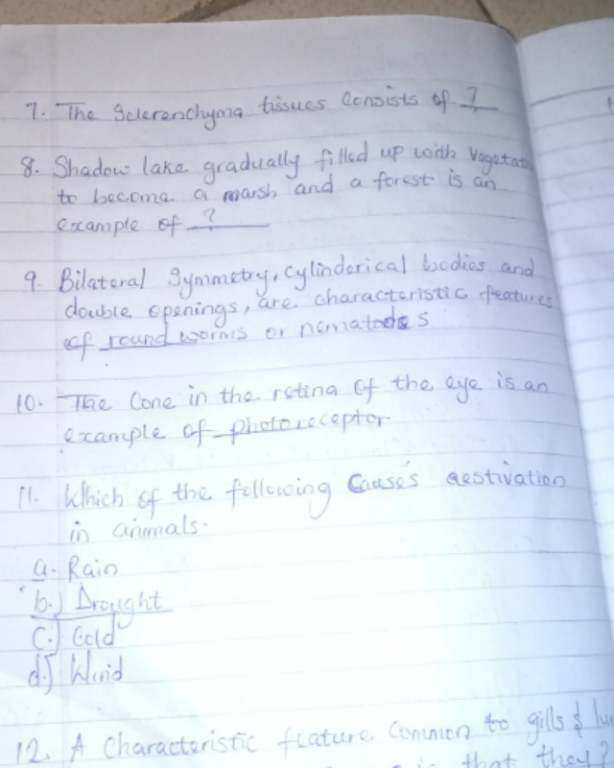 7. The Sclerenchyma tissues Consists of ?
8. Shadow lake gradually filled up with
to become a marsh and a forest is an
example of ?
9. Bilateral Symmetry, Cylinderical bodies and
double openings, are characteristic features
of round worms or nematodes
10. The Cone in the retina of the eye is an
example of photoreceptor
11. Which of the following Causes aestivation
in animals.
a. Rain
b.) Drought
C.) Cold
d.) Wind
12. A Characteristic feature Common to gills &
that they?